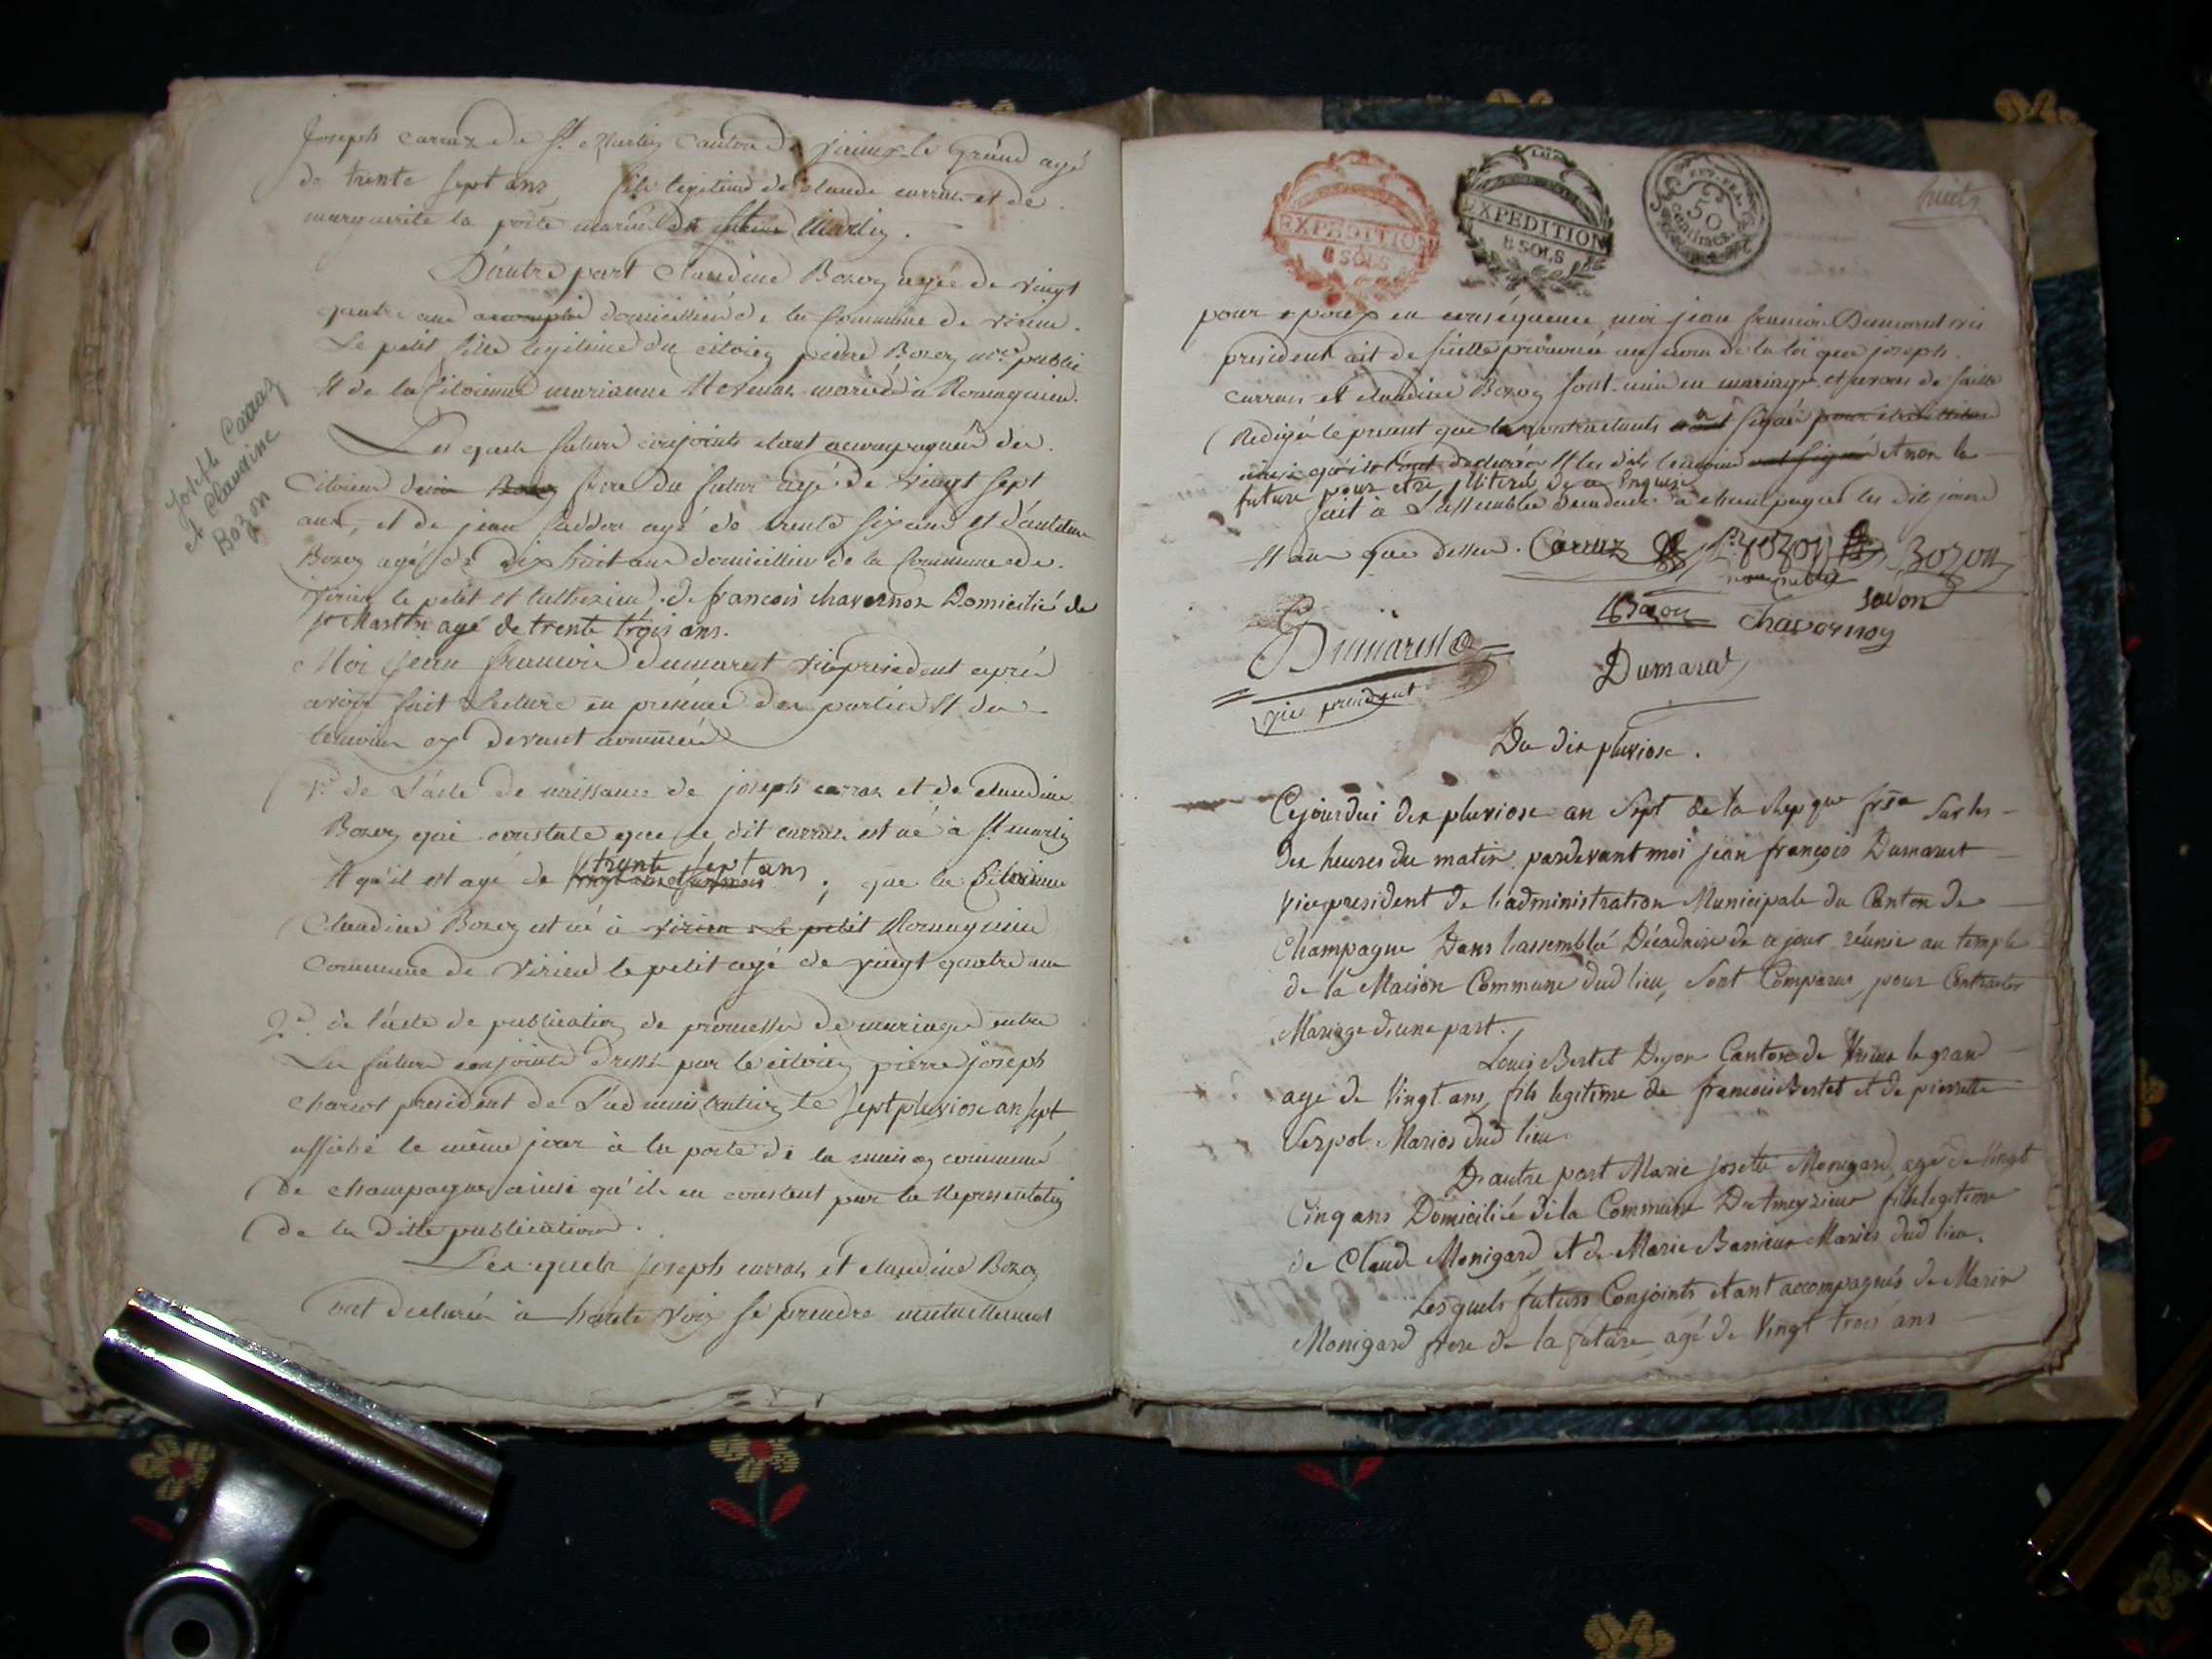 Joseph carraz de St. Martin Canton de virieux le Grand agé
de trente sept ans fils legitime de claude carraz et de
marguerite la porte mariés Martin.
D'autre part Claudine Bozon agée de vingt
quatre ans domiciliée de la Commune de virieu
Le petit fille legitime du citoien pierre Bozon nore public
Et de la Citoienne marianne mariés à Romagnieu.
Les quels futurs conjoints etant accompagnés des
Citoiens frere du futur agé de vingt sept
ans, et de jean agé de trente six ans Et d'anthelme
Bozon agé de dix huit ans domiciliés de la Commune de
virieu le petit Et de francois chavornoz Domicilié de
St Martin agé de trente trois ans.
Moi jean francois dumarest vice president après
avoir fait Lecture en présence des parties Et des
temoins cy devant nommés
1o. de L'acte de naissance de joseph carraz et de claudine
Bozon qui constate que le dit carraz est né à St martin
Et qu'il est agé de trente sept ans ; que la Citoienne
Claudine Bozon est né à virieu le petit Romagnieu
Commune de virieu le petit agé de vingt quatre ans
2o. de l'acte de publication de promesses de mariage entre
Les futurs conjoints dressé par le citoien pierre joseph
president de L'administration le sept pluviose an sept
affiché le même jour à la porte de la maison commune
de champagne ainsi qu'il en constent par la Representation
de la ditte publication.
Les quels joseph carraz et claudine Bozon
ont declarés à haute voix se prendre mutuellement
Joseph Carraz
et Claudine
Bozon
EXPEDITION
8 SOLS
EXPEDITION
8 SOLS
REP. FRA.
50
centimes
huit
pour epoux en conséquence, moi jean francois Dumarest vice
president ait de suitte prononcé au nom de la loi que joseph
carraz et claudine Bozon sont unis en mariage, et avons de suitte
Redigé le present que les contractants ont signé
ainsi qu'ils l'ont declarés Et les dits temoins ont signé et non la
future pour etre illiteré de ce Enquise
fait à L'assemblée decadaire à champagne les dits jours
Et an que dessus. Carraz Bozon Bozon
nore public
Bozon chavornoy
Dumarest
vice president
Dumarest
Du dix pluviose.
Cejourdui dix pluviose an Sept de la Repque frse Sur les
dix heures du matin, pardevant moi jean françois Dumarest
Vice president de l'administration Municipale du Canton de
Champagne Dans l'assemblé Décadaire de ce jour réunie au temple
de la Maison Commune dud lieu, Sont Comparus, pour Contracter
Mariage d'une part.
Louis Bertet Canton de Virieux le grand
agé de Vingt ans, fils legitime de francois Bertet et de pierrette
Verpol Mariés dud lieu
D'autre part Marie josette Monigard, agé de Vingt
Cinq ans Domiciliée de la Commune fille legitime
de Claude Monigard et de Marie Mariés dud lieu.
Lesquels futurs Conjoints etant accompagnés de Marin
Monigard frere de la future, agé de Vingt trois ans